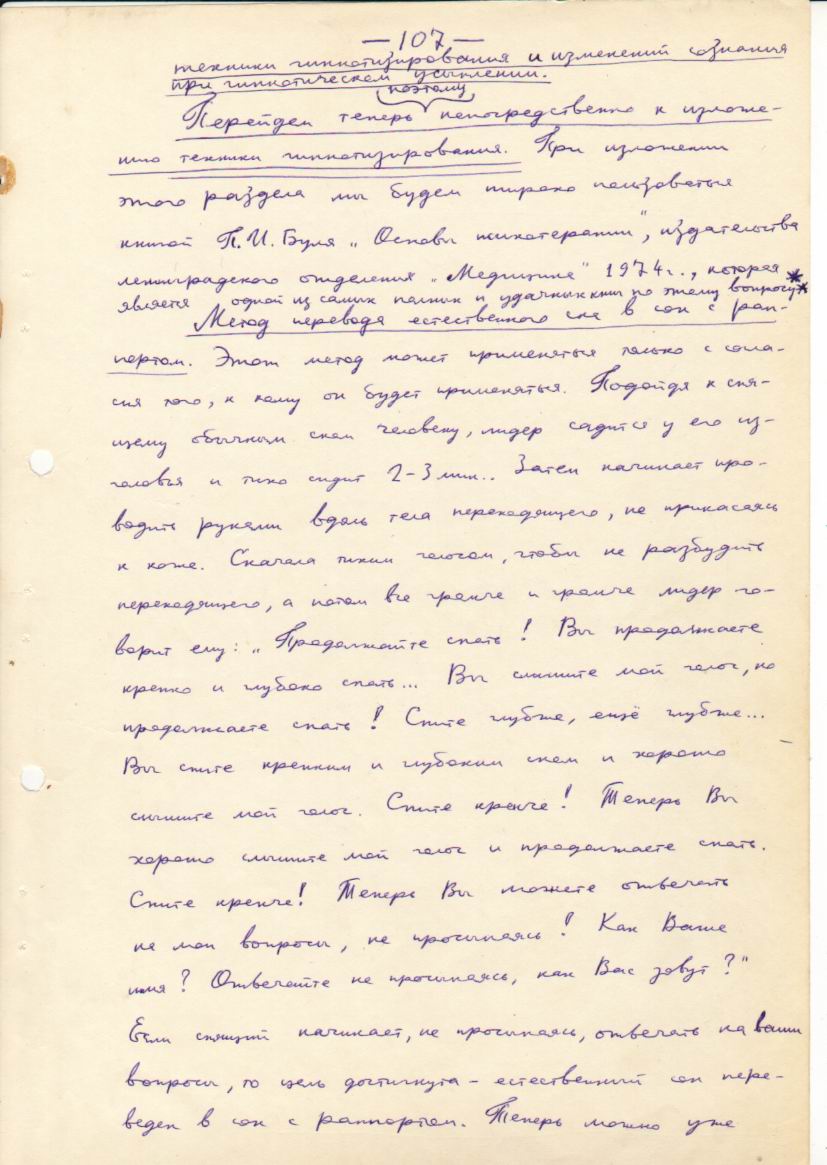 — 107 —
техники гипнотизирования и изменений сознания
при гипнотическом усыплении.
поэтому
Перейдем теперь непосредственно к изложе-
нию техники гипнотизирования. При изложении
этого раздела мы будем широко пользоваться
книгой П.И. Буля „Основы психотерапии", издательства
ленинградского отделения „Медицина" 1974 г., которая
является одной из самых полных и удачных книг по этому вопросу
Метод перевода естественного сна в сон с рап-
портом. Этот метод может применяться только с согла-
сия того, к кому он будет применяться. Подойдя к спя-
щему обычным сном человеку, лидер садится у его из-
головья и тихо сидит 2-3 мин.. Затем начинает про-
водить руками вдоль тела переходящего, не прикасаясь
к коже. Сначала тихим голосом, чтобы не разбудить
переходящего, а потом все громче и громче лидер го-
ворит ему: „Продолжайте спать! Вы продолжаете
крепко и глубоко спать... Вы слышите мой голос, но
продолжаете спать! Спите глубже, ещё глубже...
Вы спите крепким и глубоким сном и хорошо
слышите мой голос. Спите крепче! Теперь Вы
хорошо слышите мой голос и продолжаете спать.
Спите крепче! Теперь Вы можете отвечать
на мои вопросы, не просыпаясь! Как Ваше
имя? Отвечайте не просыпаясь, как Вас зовут?"
Если спящий начинает, не просыпаясь, отвечать на ваши
вопросы, то цель достигнута - естественный сон пере-
веден в сон с раппортом. Теперь можно уже